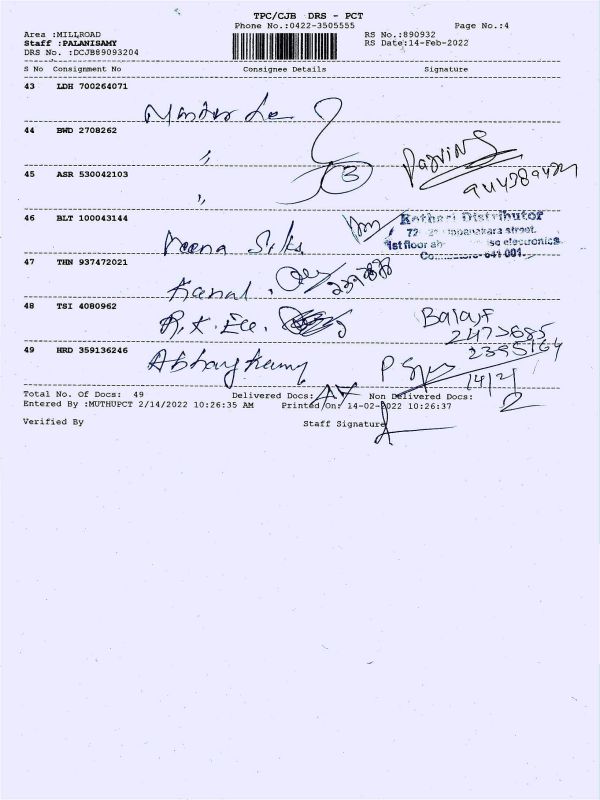 TPC/CJB DRS - PCT
Phone No.:0422-3505555 Page No.:4
Area :MILLROAD RS No.:890932
Staff :PALANISAMY RS Date:14-Feb-2022
DRS No. :DCJB89093204
S No Consignment No Consignee Details Signature
43 LDH 700264071
44 BWD 2708262
〃
45 ASR 530042103
〃
3
46 BLT 100043144
Meena Silks
Kothari Distributor
street.
1st floor electronics
641 001.
47 THN 937472021
Kamal.
48 TSI 4080962
R.K. Ece.
Balaji
49 HRD 359136246
14/2/
Total No. Of Docs: 49 Delivered Docs: 47 Non Delivered Docs: 2
Entered By :MUTHUPCT 2/14/2022 10:26:35 AM Printed On: 14-02-2022 10:26:37
Verified By Staff Signature